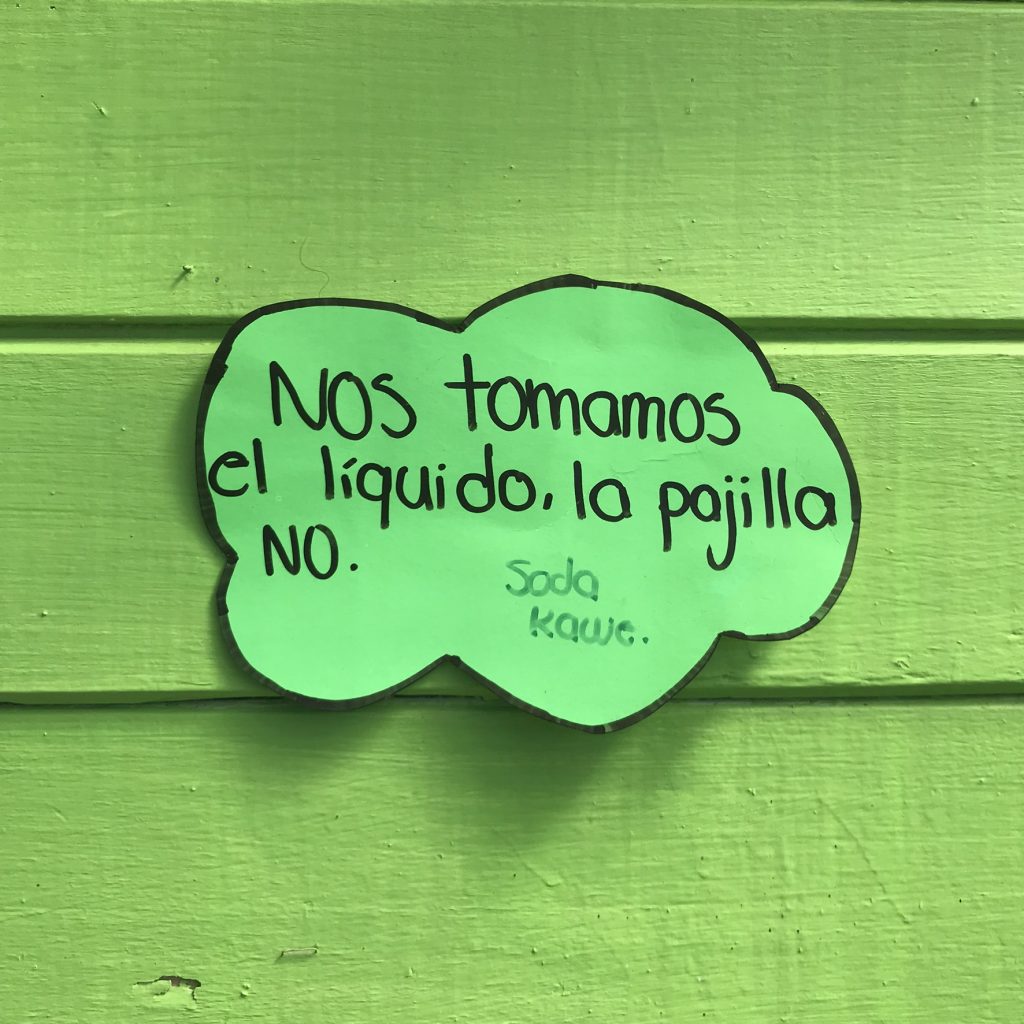 Nos tomamos
el líquido, la pajilla
NO.
Soda
kawe.